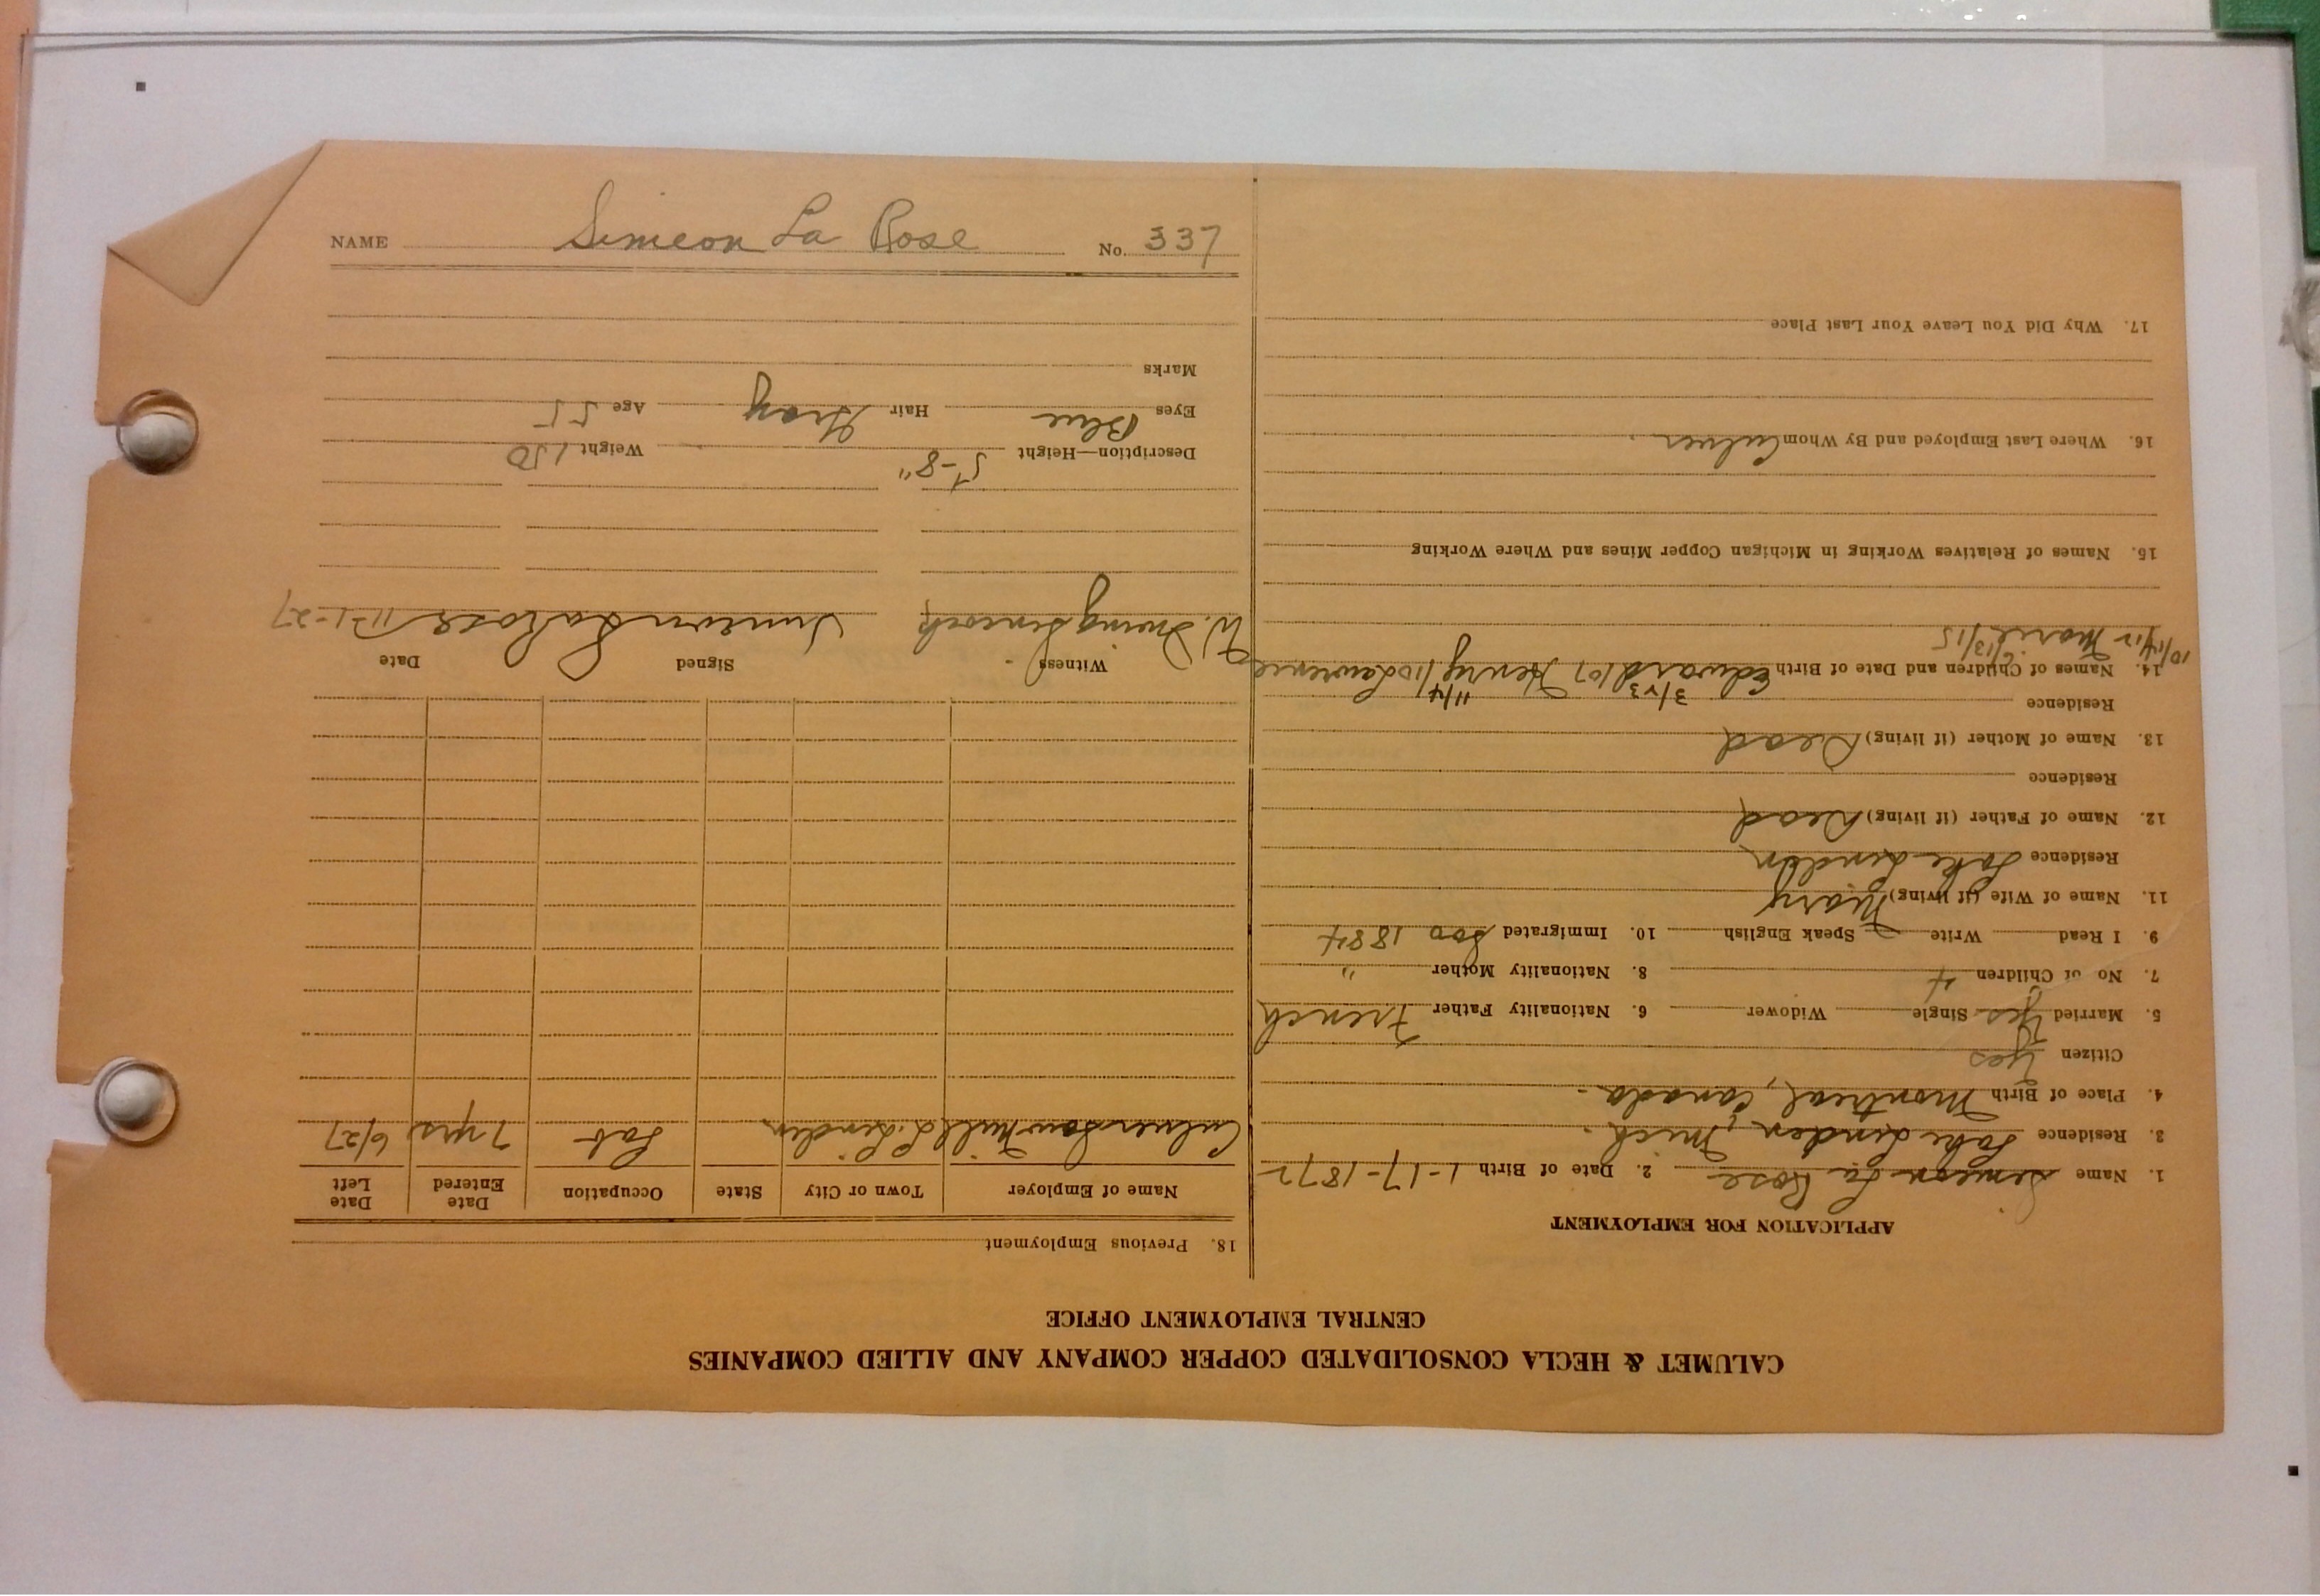 NAME Simeon La Rose No. 337
CALUMET & HECLA CONSOLIDATED COPPER COMPANY AND ALLIED COMPANIES
CENTRAL EMPLOYMENT OFFICE
APPLICATION FOR EMPLOYMENT
1. Name Simeon La Rose 2. Date of Birth 1-17-1872
3. Residence Lake Linden, Mich.
4. Place of Birth Montreal, Canada.
Citizen Yes
5. Married Yes Single Widower 6. Nationality Father French
7. No of Children 4 8. Nationality Mother "
9. I Read Write Speak English 10. Immigrated Soo 1884
11. Name of Wife (if living) Mary
Residence Lake Linden
12. Name of Father (if living) Dead
Residence
13. Name of Mother (if living) Dead
Residence
14. Names of Children and Date of Birth Edward 3/23/07 Henry 11/4/10 Lawrence
10/14/12 Marie 6/13/15
15. Names of Relatives Working in Michigan Copper Mines and Where Working
16. Where Last Employed and By Whom Culver
17. Why Did You Leave Your Last Place
18. Previous Employment
Name of Employer Town or City State Occupation Date Entered Date Left
Culver Saw Mill L. Linden Lab 7 yrs 6/27
Witness Signed Date
W. Irving Simeon La Rose 11-1-27
Description—Height 5'-8" Weight 150
Eyes Blue Hair Gray Age 55
Marks